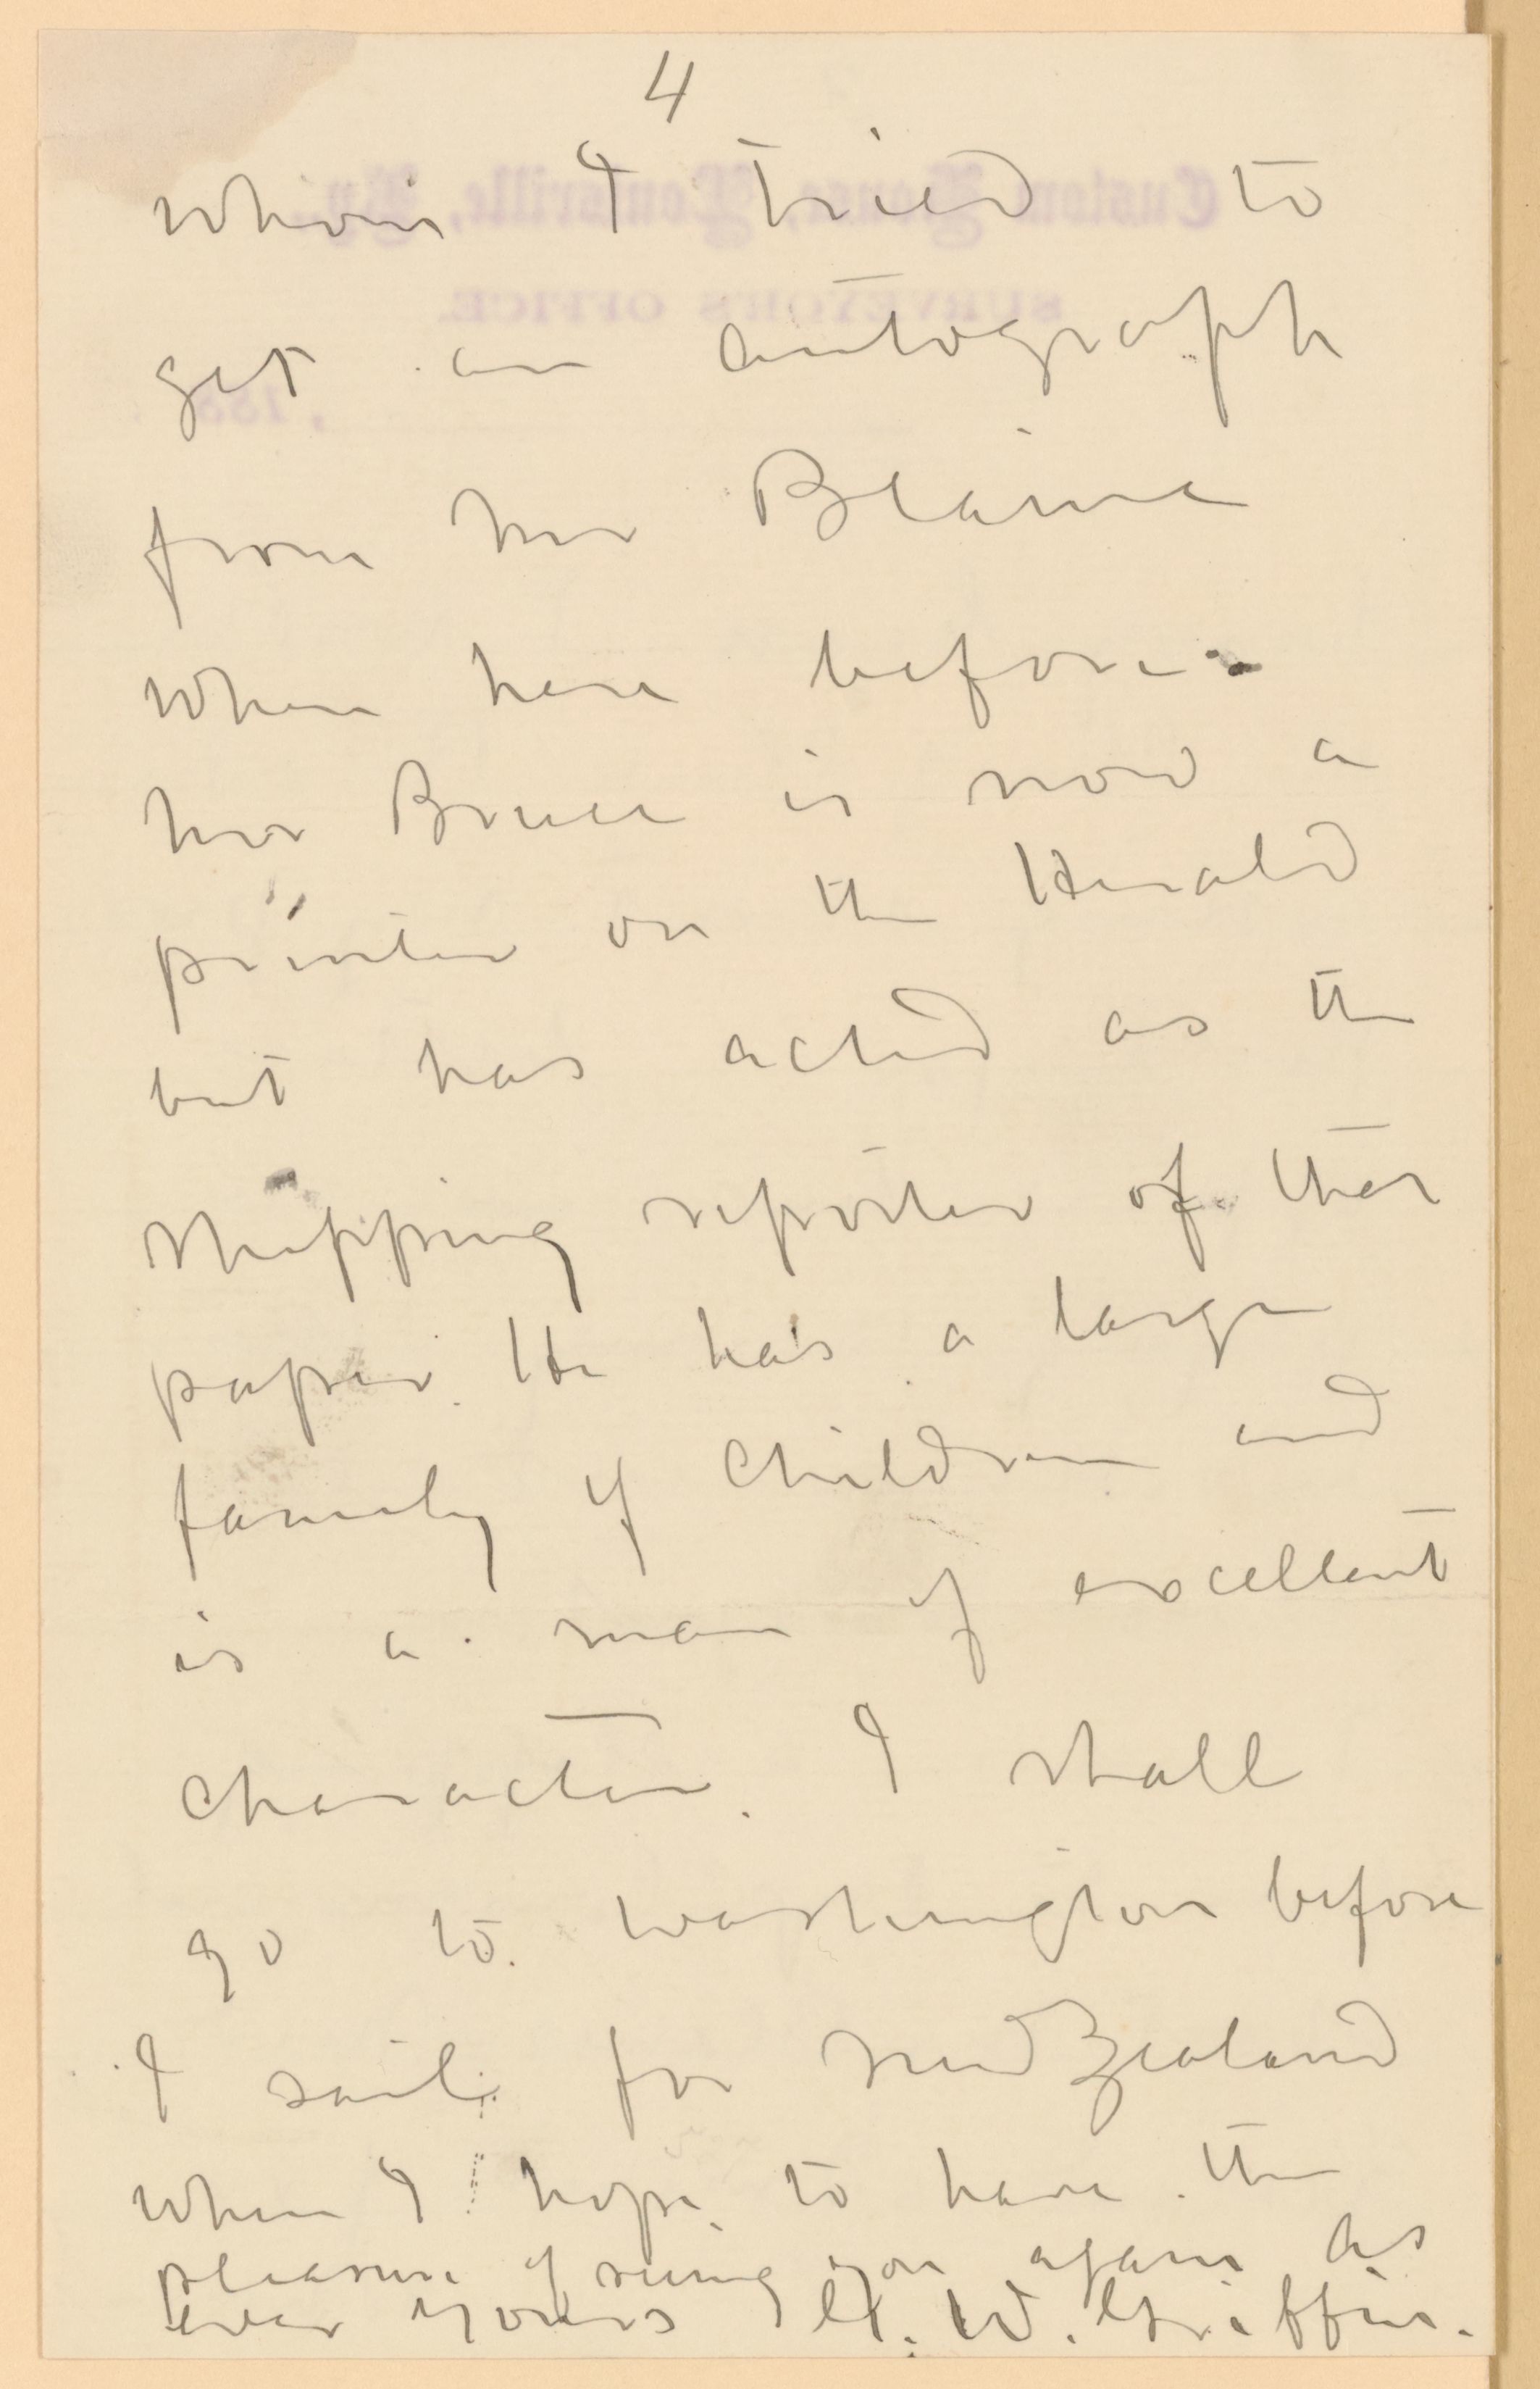 4
whom I tried to
get an autograph
from Mr Blaine
when here before.
Mr Bruce is now a
printer on the Herald
but has acted as the
shipping reporter of that
paper. He has a large
family of children and
is a man of excellent
character. I shall
go to Washington before
I sail for New Zealand
when I hope to have the
pleasure of seeing you again As
ever yours G. W. Griffin.
Custom House, Louisville, Ky.
SURVEYOR'S OFFICE.
, 188